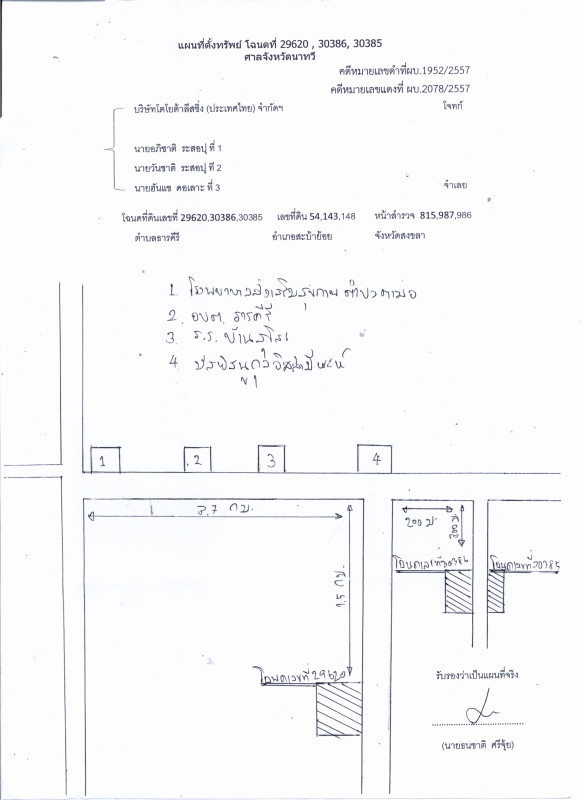 แผนที่ตั้งทรัพย์ โฉนดที่ 29620 , 30386, 30385
ศาลจังหวัดนาทวี
คดีหมายเลขดำที่ผบ.1952/2557
คดีหมายเลขแดงที่ ผบ.2078/2557
บริษัทโตโยต้าลีสซิ่ง (ประเทศไทย) จำกัดฯ โจทก์
นายอภิชาติ ระสอปุ ที่ 1
นายวันชาติ ระสอปุ ที่ 2
นายฮันแซ ดอเลาะ ที่ 3 จำเลย
โฉนดที่ดินเลขที่ 29620,30386,30385 เลขที่ดิน 54,143,148 หน้าสำรวจ 815,987,986
ตำบลธารคีรี อำเภอสะบ้าย้อย จังหวัดสงขลา
1. โรงพยาบาลส่งเสริมสุขภาพ ตำบล
2. อบต. ธารคีรี
3. ร.ร. บ้าน
4
1 2 3 4
3.7 กม.
200 ม.
200 ม.
1.5 กม.
โฉนดเลขที่ 30386
โฉนดเลขที่ 30385
โฉนดเลขที่ 29620
รับรองว่าเป็นแผนที่จริง
(นายธนชาติ ศรีจุ้ย)